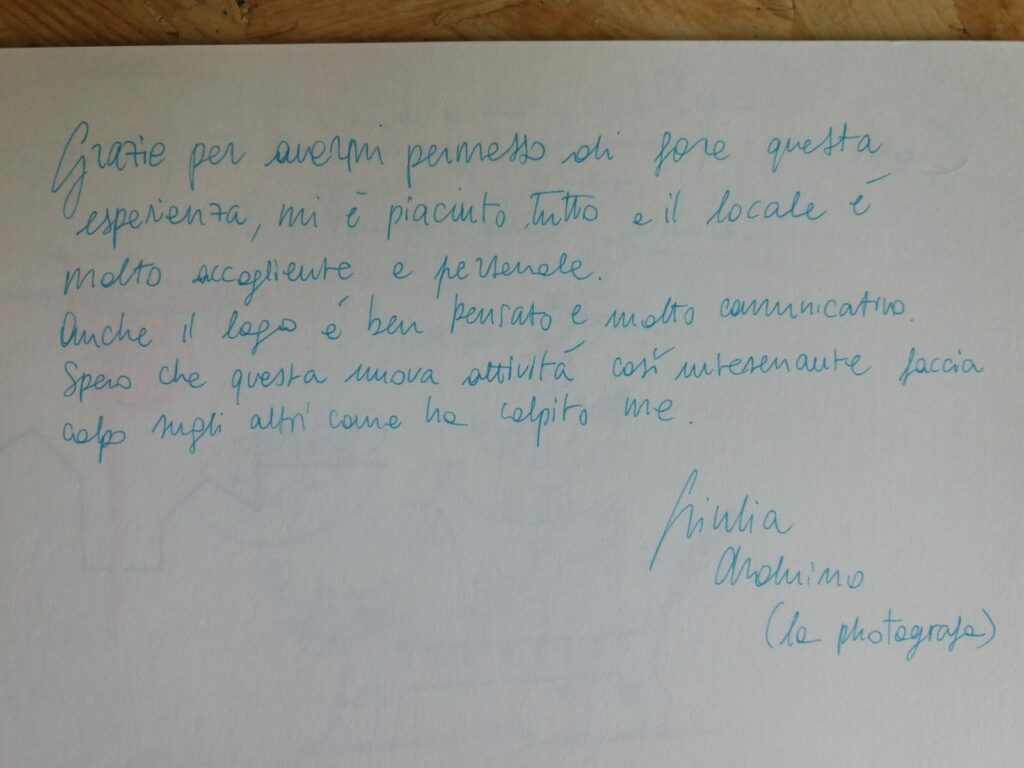 Grazie per avermi permesso di fare questa
esperienza, mi è piaciuto tutto e il locale è
molto accogliente e personale.
Anche il logo è ben pensato e molto comunicativo.
Spero che questa nuova attività così interessante faccia
colpo sugli altri come ha colpito me.
Giulia
Arduino
(la photografa)